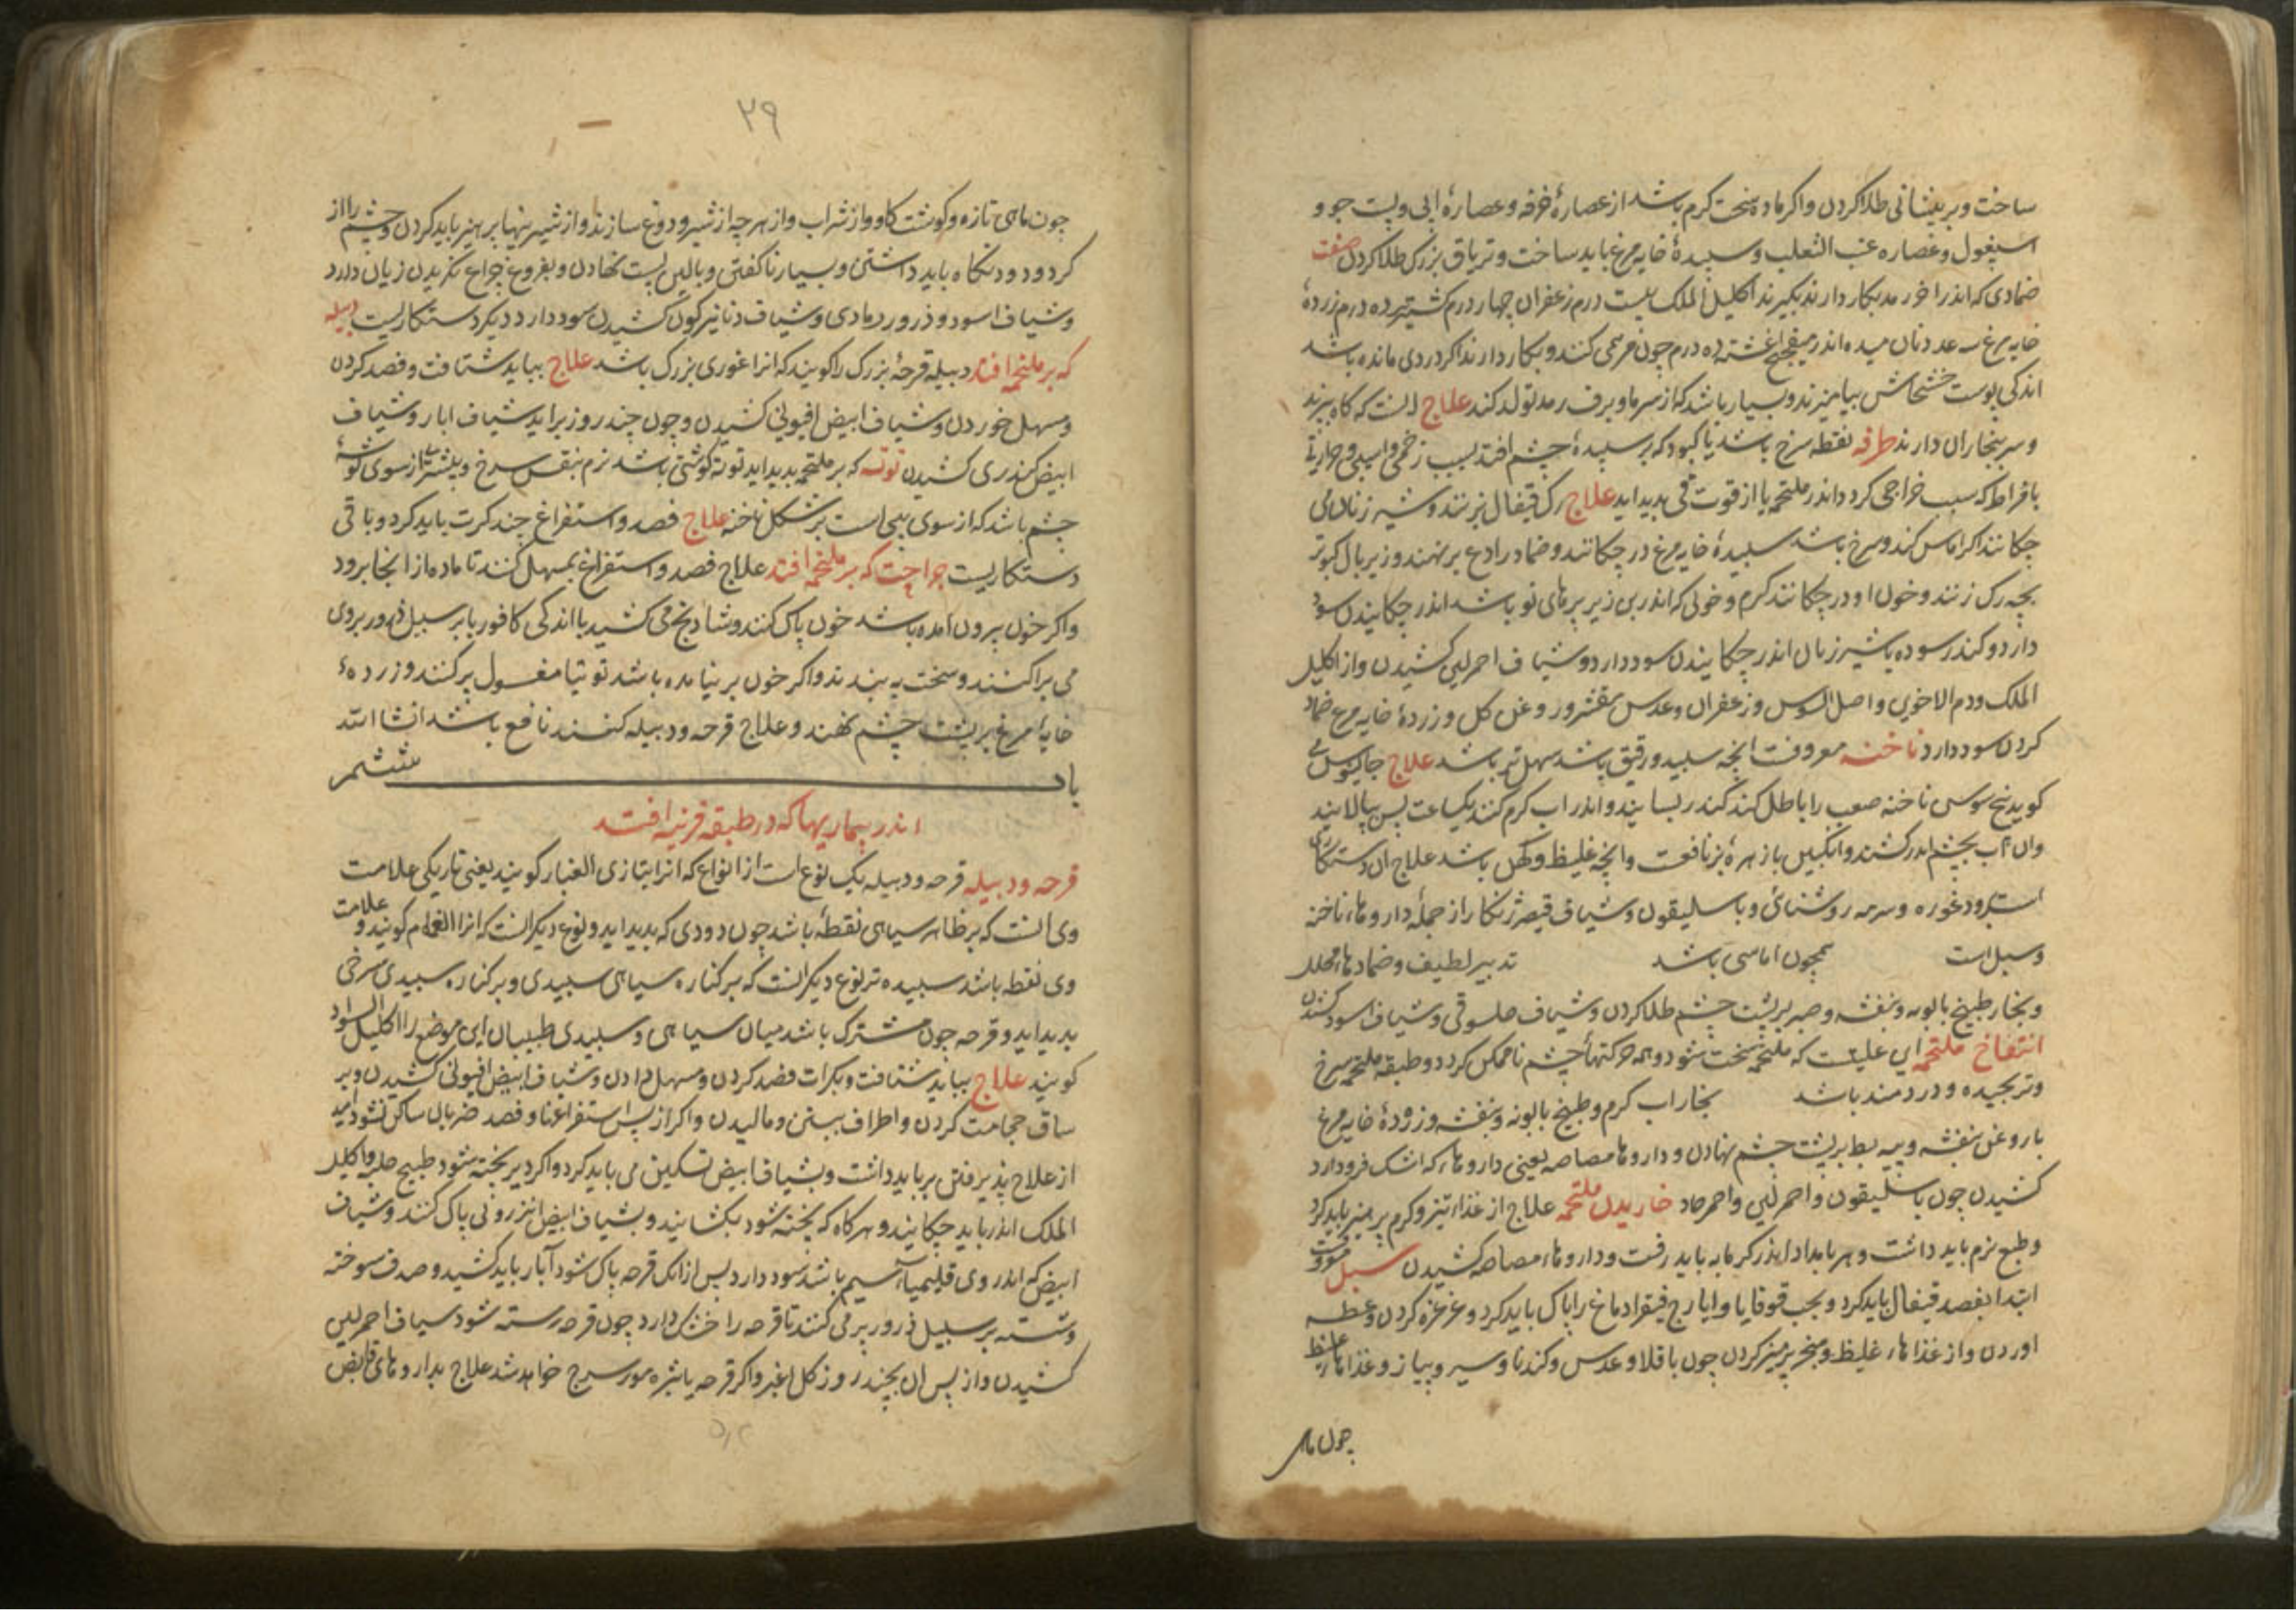 ساخت و بر پیشانی طلا کردن و اکر ماده سخت کرم باشد از عصارهٔ خرفه و عصارهٔ ابی و پست جو و
اسپغول و عصاره عنب الثعلب و سپیدهٔ خایه مرغ باید ساخت و تریاق بزرک طلا کردن صفت
ضمادی که اندر اخر رمد بکار دارند بکیرند اکلیل الملک بیست درم زعفران چهار درم کشنیز ده درم زردهٔ
خایه مرغ سه عدد نان میده اندر میفختج اغشته ده درم چون مرهمی کنند و بکار دارند اکر دردی مانده باشد
اندکی پوست خشخاش بیامیزند و بسیار باشد که از سرما و برف رمد تولد کند علاج انست که کاه بپزند
و سر ببخار ان دارند طرفه نقطه سرخ باشد یا کبود که بر سپیدهٔ چشم افتد بسبب زخمی و اسیبی و حرارتی
بافراط که سبب خراجی کردد اندر ملتحمه یا از قوت قی بدید اید علاج رک قیفال بزنند و شیر زنان می
چکانند اکر اماس کند و سرخ باشد سپیدهٔ خایه مرغ در چکانند و ضماد رادع بر نهند و زیر بال کبوتر
بچه رک زنند و خون او در چکانند کرم و خونی که اندر بن زیر پرهای نو باشد اندر چکانیدن سود
دارد و کندر سوده با شیر زنان اندر چکانیدن سود دارد و شیاف احمر لین کشیدن و از اکلیل
الملک و دم الاخوین و اصل السوس و زعفران و عدس مقشر و روغن کل و زردهٔ خایه مرغ ضماد
کردن سود دارد ناخنه معروفست انچه سپید و رقیق باشد سهل تر باشد علاج جالینوس می
کوید بیخ سوسن ناخنه صعب را باطل کند کندر بسایند و اندر اب کرم کنند یکساعت پس بپالایند
و ان اب بچشم اندر کشند و انکبین با زهرهٔ بز نافعست و انچه غلیظ و کهن باشد علاج ان دستکاری
است و ورد غوره و سرمه روشنائی و باسلیقون و شیاف قیصر و زنکار از جمله داروهاء ناخنه
و سبل است همچون اماسی باشد تدبیر لطیف و ضمادهاء محلل
و بخار طبیخ بابونه و بنفشه و صبر بر پشت چشم طلا کردن و شیاف و شیاف اسود کشند
انتفاخ ملتحمه این علتیست که ملتحمه سخت شود و همه حرکتهاء چشم ناممکن کردد و طبقه ملتحمه سرخ
و ترنجیده و دردمند باشد بخار اب کرم و طبیخ بابونه و بنفشه و زردهٔ خایه مرغ
با روغن بنفشه و پیه بط بر پشت چشم نهادن و داروها مصاصه یعنی داروهاء که اشک فرود ارد
کشیدن چون باسلیقون و احمر لین و احمر حاد خاریدن ملتحمه علاج از غذاء تیز و کرم پرهیز باید کرد
و طبع نرم باید داشت و هر بامداد اندر کرمابه باید رفت و داروهاء مصاصه کشیدن سبل معروفست
ابتدا بفصد قیفال باید کرد و بحب قوقایا و ایارج فیقرا دماغ را پاک باید کرد و غرغره کردن و عطسه
اوردن و از غذاهاء غلیظ و مبخر پرهیز کردن چون باقلا و عدس و کندنا و سیر و پیاز و غذاهاء غلیظ
چون ماهی
۲۹
چون ماهی تازه و کوشت کاو و از شراب و از هر چه از شیر و دوغ سازند و از شیرینیها پرهیز باید کردن و چشم را از
کرد و دود نکاه باید داشتن و بسیار ناکفتن و بالین پست نهادن و بفروغ چراغ نکریدن زیان دارد
و شیاف اسود و ذرور رمادی و شیاف دنانیرکون کشیدن سود دارد دیکر دستکاریست دبیله
که بر ملتحمه افتد دبیله قرحهٔ بزرک را کویند که انرا غوری بزرک باشد علاج بباید شتافت و فصد کردن
و مسهل خوردن و شیاف ابیض افیونی کشیدن و چون چند روز براید شیاف ابار و شیاف
ابیض کندری کشیدن توثه که بر ملتحمه بدید اید توثه کوشتی باشد نرم بنفش سرخ و بیشتر از سوی کوشهٔ
چشم باشد که از سوی بینی است بر شکل ناخنه علاج فصد و استفراغ چند کرت باید کرد و باقی
دستکاریست جراحت که بر ملتحمه افتد علاج فصد و استفراغ بمسهل کنند تا ماده از انجا برود
و اکر خون بیرون امده باشد خون پاک کنند و شادنج می کشید با اندکی کافور یا بر سبیل ذرور بروی
می پراکنند و سخت به بندند و اکر خون بر نیامده باشد توتیا مغسول پر کنند و زردهٔ
خایهٔ مرغ بر پشت چشم نهند و علاج قرحه و دبیله کنند نافع باشد انشا الله
باب ششم
اندر بیماریها که در طبقه قرنیه افتد
قرحه و دبیله قرحه و دبیله یک نوع است از انواع که انرا بتازی الغبار کویند یعنی تاریکی علامت
وی انست که بر ظاهر سیاهی نقطهٔ باشد چون دودی که بدید اید و نوع دیکر انست که انرا الغمام کویند و علامت
وی نقطه باشد سپیده تر نوع دیکر انست که بر کناره سیاهی سپیدی و بر کناره سپیدی سرخی
بدید اید و قرحه چون مشترک باشد میان سیاهی و سپیدی طبیبان این موضع را اکلیل السواد
کویند علاج بباید شتافت و بکرات فصد کردن و مسهل دادن و شیاف ابیض افیونی کشیدن و بر
ساق حجامت کردن و اطراف ببستن و مالیدن و اکر از پس استفراغها و فصد ضربان ساکن نشود امید
از علاج پذیرفتن بر باید داشت و بشیاف ابیض تسکین می باید کرد و اکر دیر پخته شود طبیخ حلبه و اکلیل
الملک اندر باید چکانید و هر کاه که پخته شود بکشایند و بشیاف ابیض انزروتی پاک کنند و شیاف
ابیض که اندر وی قلیمیاء سیم باشد سود دارد پس از انک قرحه پاک شود آبار باید کشید و صدف سوخته
و شسته بر سبیل ذرور پر می کنند تا قرحه را خشک دارد چون قرحه رسته شود شیاف احمر لین
کشیدن و از پس ان بچند روز کل اغبر و اکر قرحه یا بثره مورسرج خواهد شد علاج بداروهای قابض